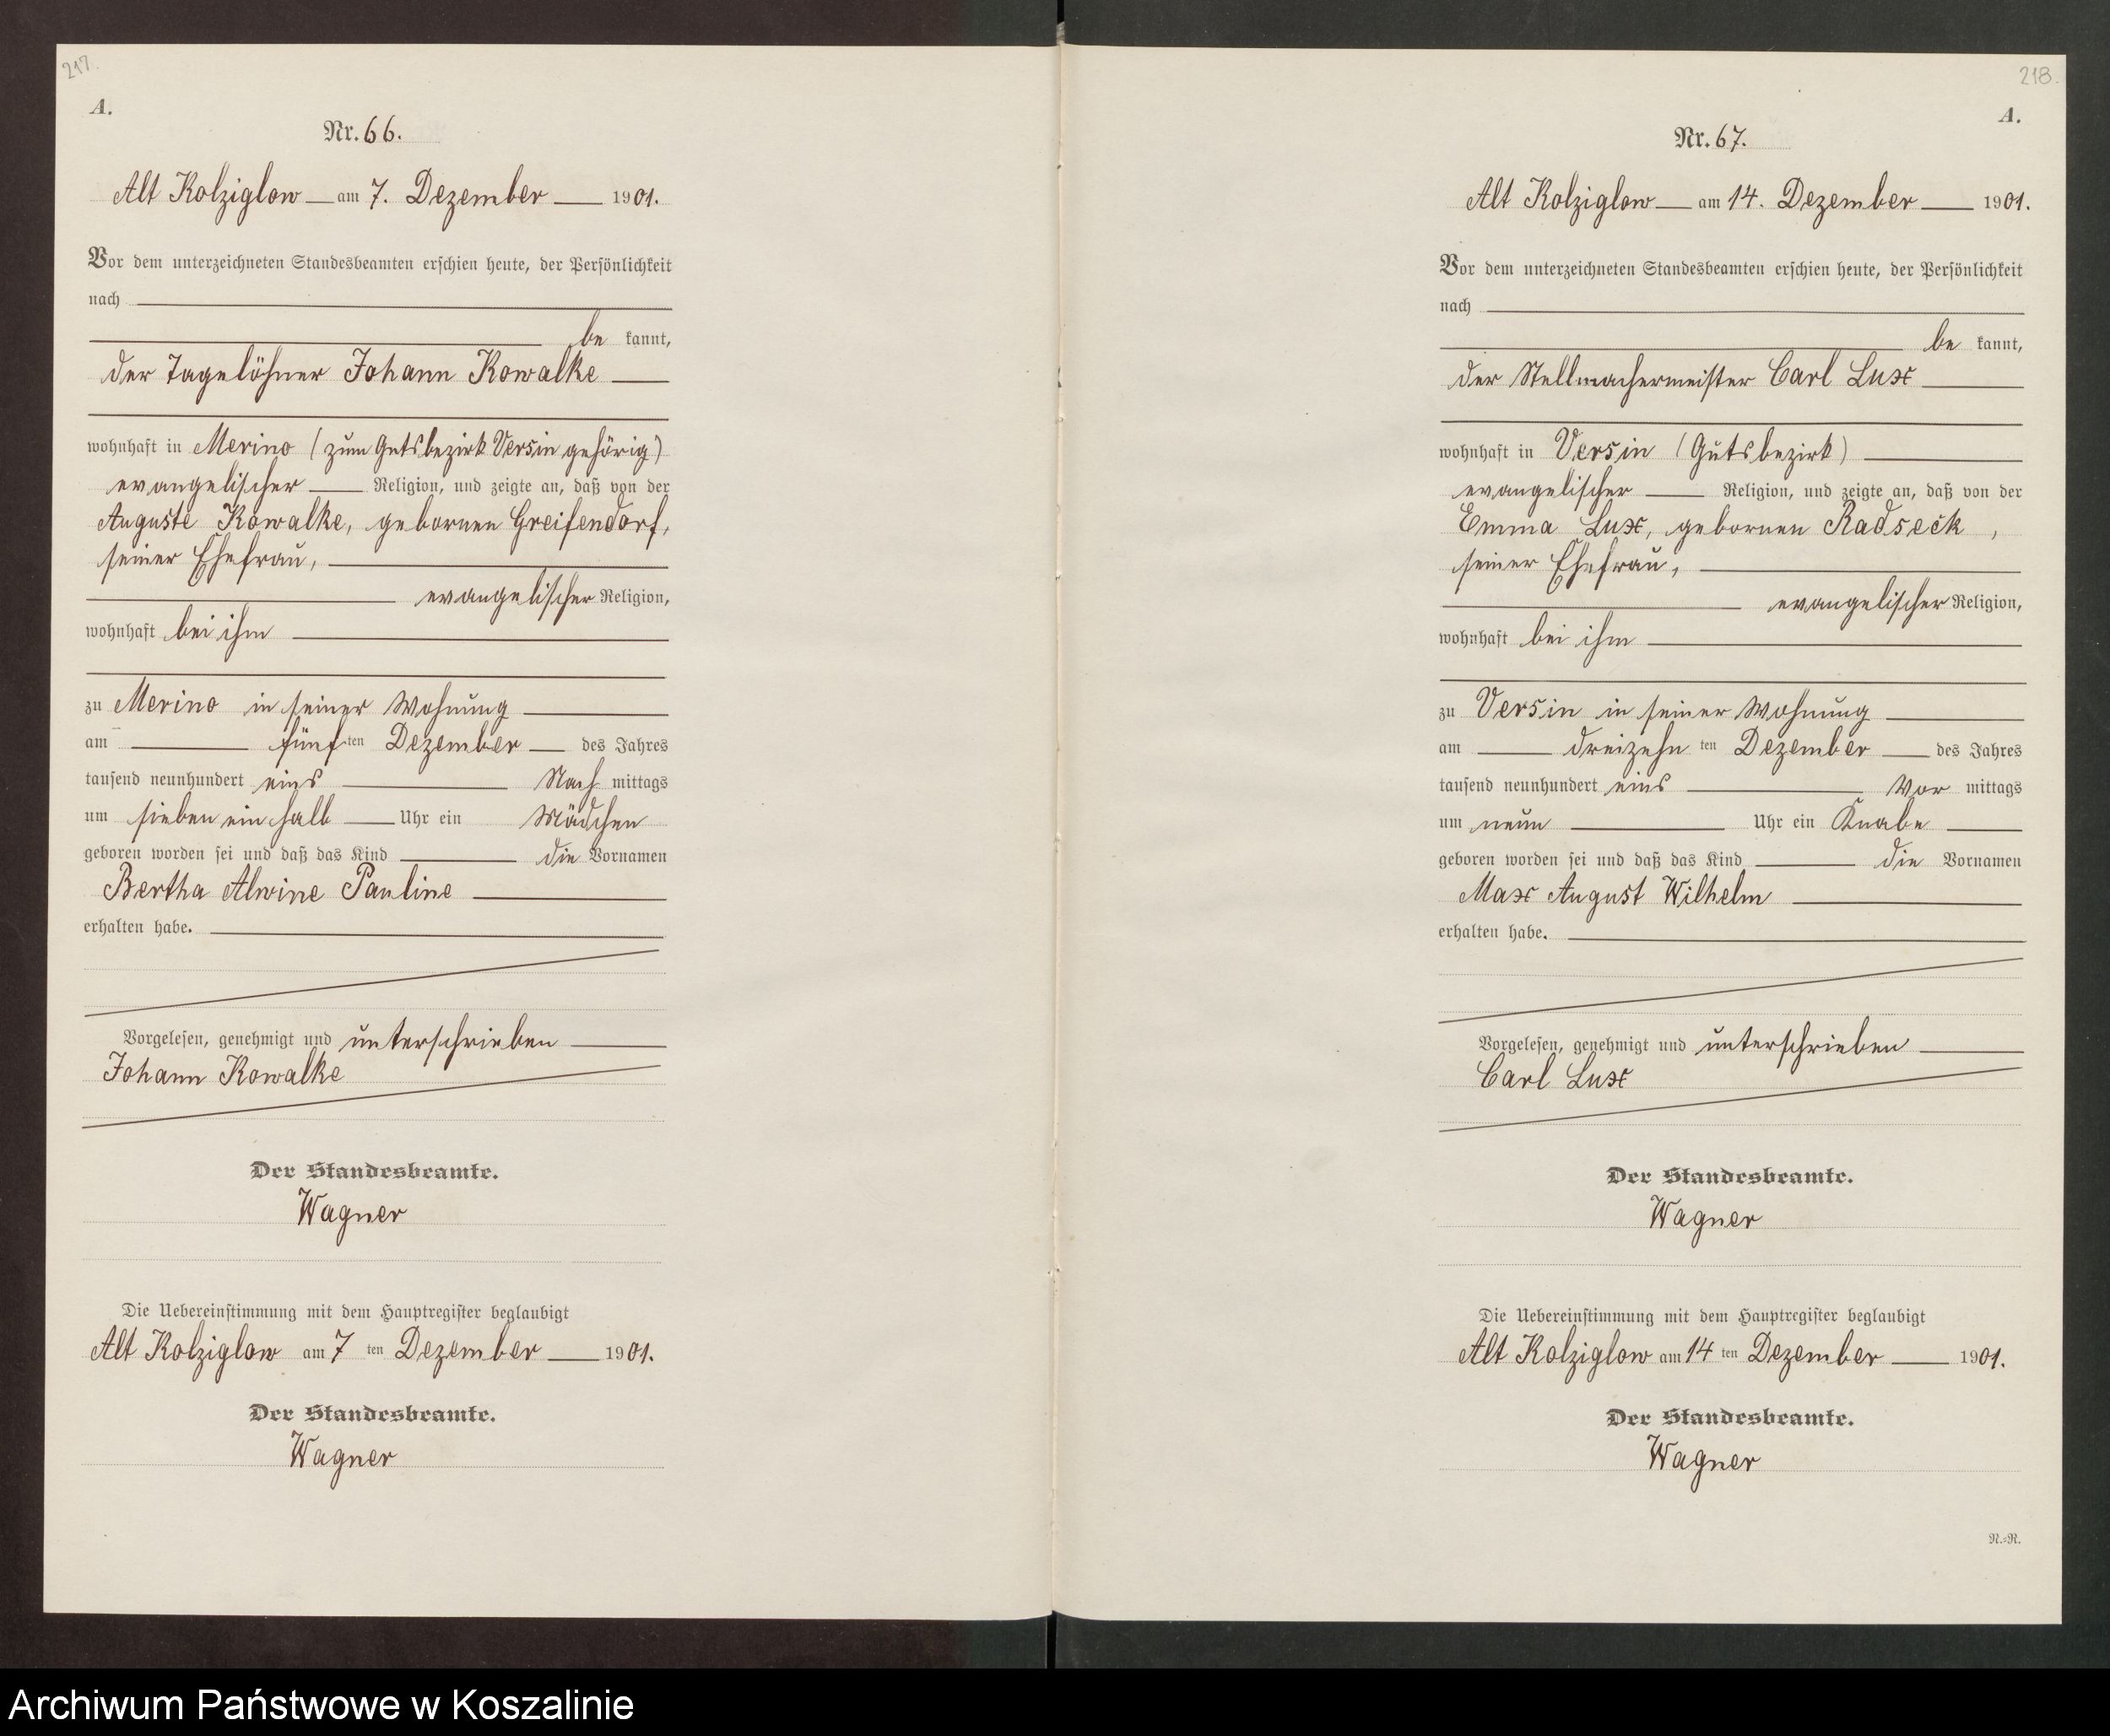 217.
A.
Nr. 66.
Alt Kolziglow am 7. Dezember 1901.
Vor dem unterzeichneten Standesbeamten erschien heute, der Persönlichkeit
nach
be kannt,
der Tagelöhner Johann Kowalke
wohnhaft in Merino (zum Gutsbezirk Versin gehörig)
evangelischer Religion, und zeigte an, daß von der
Auguste Kowalke, gebornen Greifendorf,
seiner Ehefrau,
evangelischer Religion,
wohnhaft bei ihm
zu Merino in seiner Wohnung
am fünf ten Dezember des Jahres
tausend neunhundert eins Nach mittags
um sieben ein halb Uhr ein Mädchen
geboren worden sei und daß das Kind die Vornamen
Bertha Alwine Pauline
erhalten habe.
Vorgelesen, genehmigt und unterschrieben
Johann Kowalke
Der Standesbeamte.
Wagner
Die Uebereinstimmung mit dem Hauptregister beglaubigt
Alt Kolziglow am 7 ten Dezember 1901.
Der Standesbeamte.
Wagner
218.
A.
Nr. 67.
Alt Kolziglow am 14. Dezember 1901.
Vor dem unterzeichneten Standesbeamten erschien heute, der Persönlichkeit
nach
be kannt,
der Stellmachermeister Carl Lux
wohnhaft in Versin (Gutsbezirk)
evangelischer Religion, und zeigte an, daß von der
Emma Lux, gebornen Radseck,
seiner Ehefrau,
evangelischer Religion,
wohnhaft bei ihm
zu Versin in seiner Wohnung
am dreizehn ten Dezember des Jahres
tausend neunhundert eins Vor mittags
um neun Uhr ein Knabe
geboren worden sei und daß das Kind die Vornamen
Max August Wilhelm
erhalten habe.
Vorgelesen, genehmigt und unterschrieben
Carl Lux
Der Standesbeamte.
Wagner
Die Uebereinstimmung mit dem Hauptregister beglaubigt
Alt Kolziglow am 14 ten Dezember 1901.
Der Standesbeamte.
Wagner
N.=N.
Archiwum Państwowe w Koszalinie